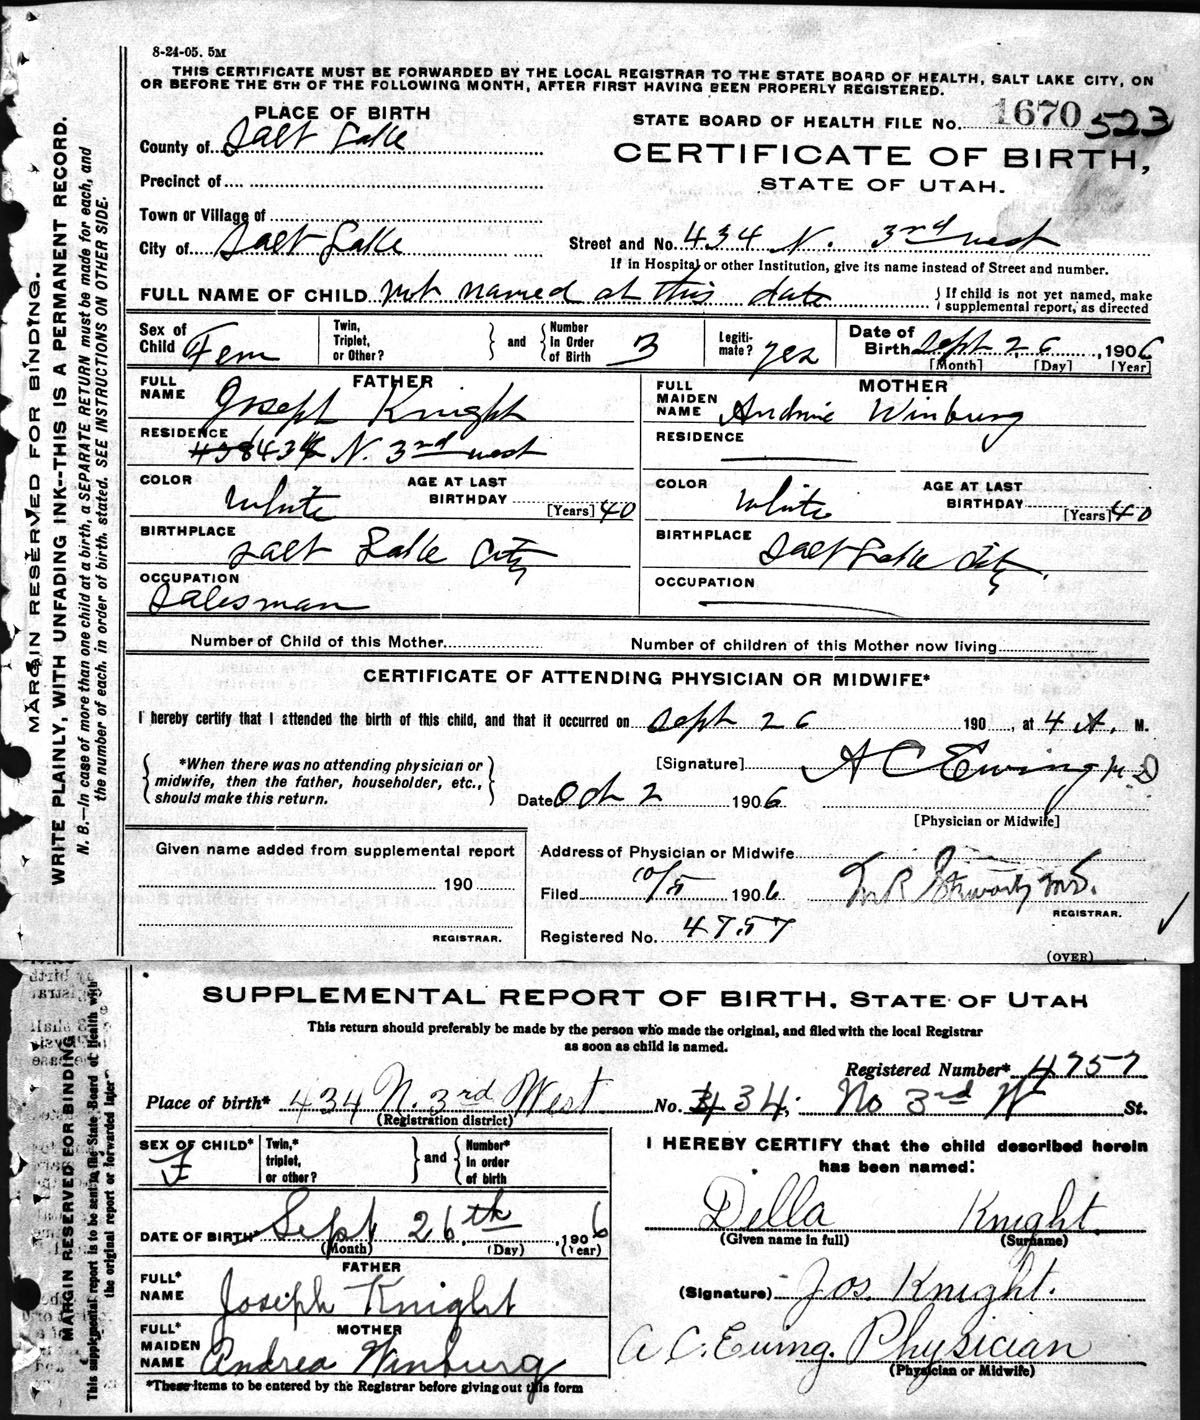 8-24-05. 5M
THIS CERTIFICATE MUST BE FORWARDED BY THE LOCAL REGISTRAR TO THE STATE BOARD OF HEALTH, SALT LAKE CITY, ON
OR BEFORE THE 5TH OF THE FOLLOWING MONTH, AFTER FIRST HAVING BEEN PROPERLY REGISTERED.
PLACE OF BIRTH
STATE BOARD OF HEALTH FILE No. 1670 523
County of Salt Lake
CERTIFICATE OF BIRTH,
STATE OF UTAH.
Precinct of
Town or Village of
City of Salt Lake
Street and No. 434 N. 3rd west
If in Hospital or other Institution, give its name instead of Street and number.
FULL NAME OF CHILD not named at this date
{ If child is not yet named, make
supplemental report, as directed
Sex of Child Fem
Twin, Triplet, or Other?
} and {
Number In Order of Birth 3
Legiti-mate? yes
Date of Birth Sept 26, 1906
[Month] [Day] [Year]
FATHER
FULL NAME Joseph Knight
RESIDENCE 434 N. 3rd west
COLOR White
AGE AT LAST BIRTHDAY [Years] 40
BIRTHPLACE Salt Lake City
OCCUPATION Salesman
MOTHER
FULL MAIDEN NAME Winburg
RESIDENCE
COLOR White
AGE AT LAST BIRTHDAY [Years] 40
BIRTHPLACE Salt Lake City.
OCCUPATION
Number of Child of this Mother
Number of children of this Mother now living
CERTIFICATE OF ATTENDING PHYSICIAN OR MIDWIFE*
I hereby certify that I attended the birth of this child, and that it occurred on Sept 26 190, at 4 A. M.
{ *When there was no attending physician or
midwife, then the father, householder, etc.,
should make this return. }
[Signature] A C Ewing M D
Date Oct 2 1906
[Physician or Midwife]
Given name added from supplemental report
190
REGISTRAR.
Address of Physician or Midwife
Filed 10/5 1906
REGISTRAR.
Registered No. 4757
(OVER)
MARGIN RESERVED FOR BINDING.
WRITE PLAINLY, WITH UNFADING INK--THIS IS A PERMANENT RECORD.
N. B.—In case of more than one child at a birth, a SEPARATE RETURN must be made for each, and
the number of each, in order of birth, stated. SEE INSTRUCTIONS ON OTHER SIDE.
SUPPLEMENTAL REPORT OF BIRTH, STATE OF UTAH
This return should preferably be made by the person who made the original, and filed with the local Registrar
as soon as child is named.
Registered Number* 4757
Place of birth* 434 N. 3rd West No. 434, No 3rd W St.
(Registration district)
SEX OF CHILD* F
Twin,* triplet, or other?
} and {
Number* In order of birth
DATE OF BIRTH* Sept 26th, 1906
(Month) (Day) (Year)
FATHER
FULL* NAME Joseph Knight
MOTHER
FULL* MAIDEN NAME Andrea Winburg
*These items to be entered by the Registrar before giving out this form
I HEREBY CERTIFY that the child described herein
has been named:
Della Knight.
(Given name in full) (Surname)
(Signature) Jos. Knight.
A C. Ewing. Physician
(Physician or Midwife)
MARGIN RESERVED FOR BINDING
This supplemental report is to be sent to the State Board of Health with
the original report or forwarded later